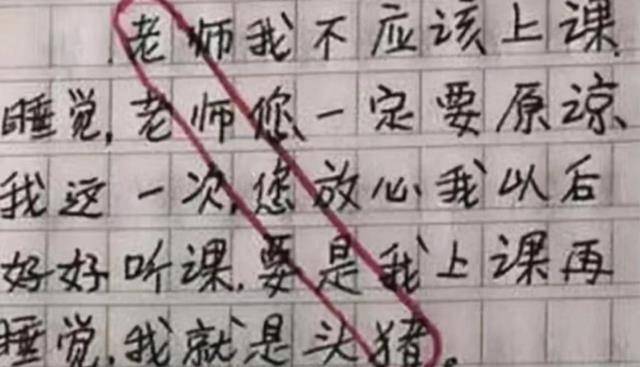 老师我不应该上课
睡觉,老师您一定要原谅
我这一次,您放心我以后
好好听课,要是我上课再
睡觉,我就是头猪。